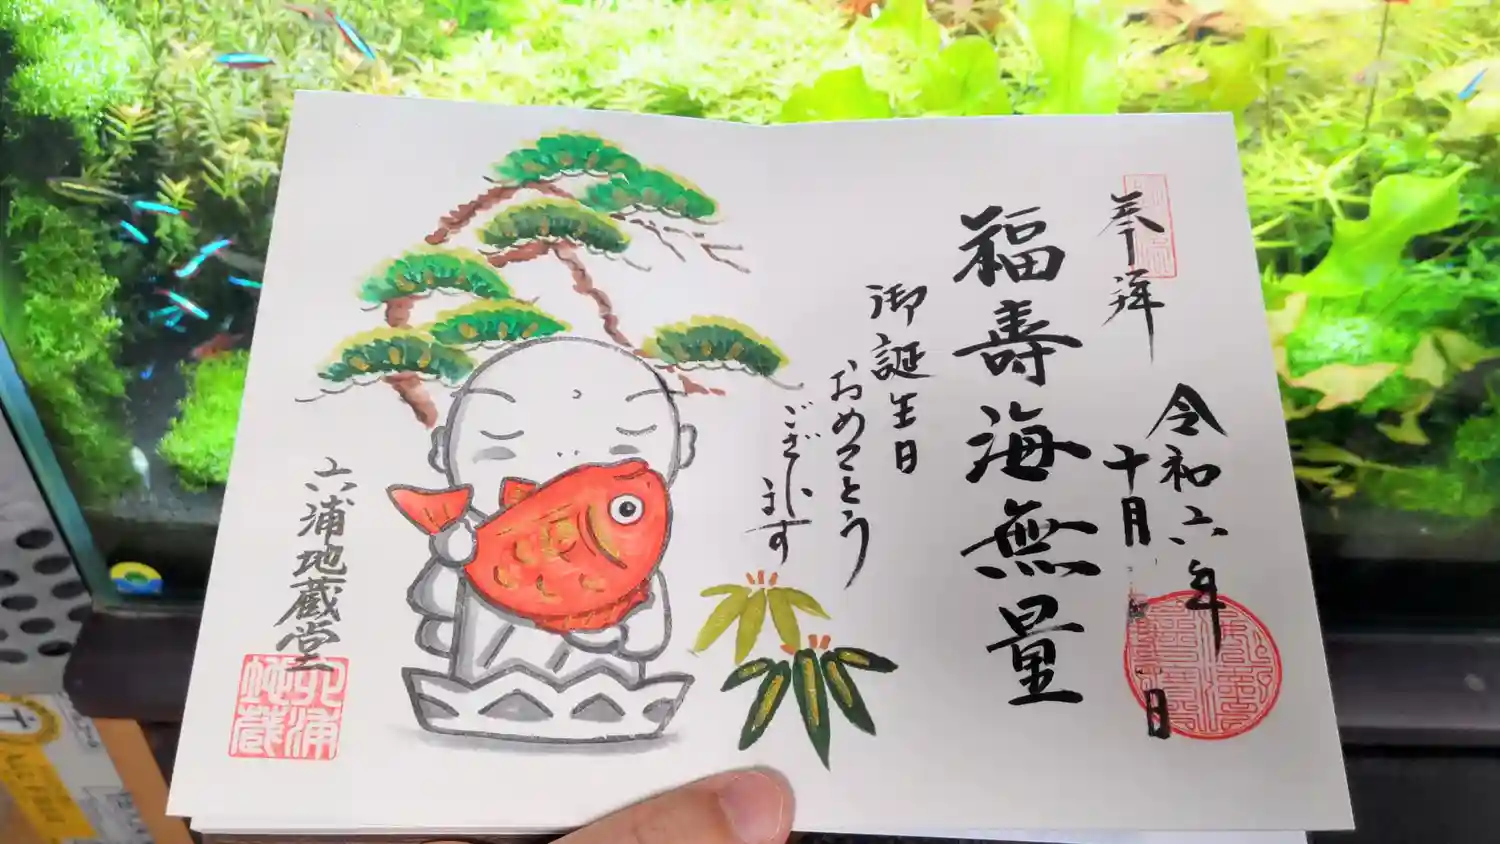 奉拝
令和六年
十月 日
福壽海無量
御誕生日
おめでとう
ございます
六浦地蔵堂
六浦地蔵